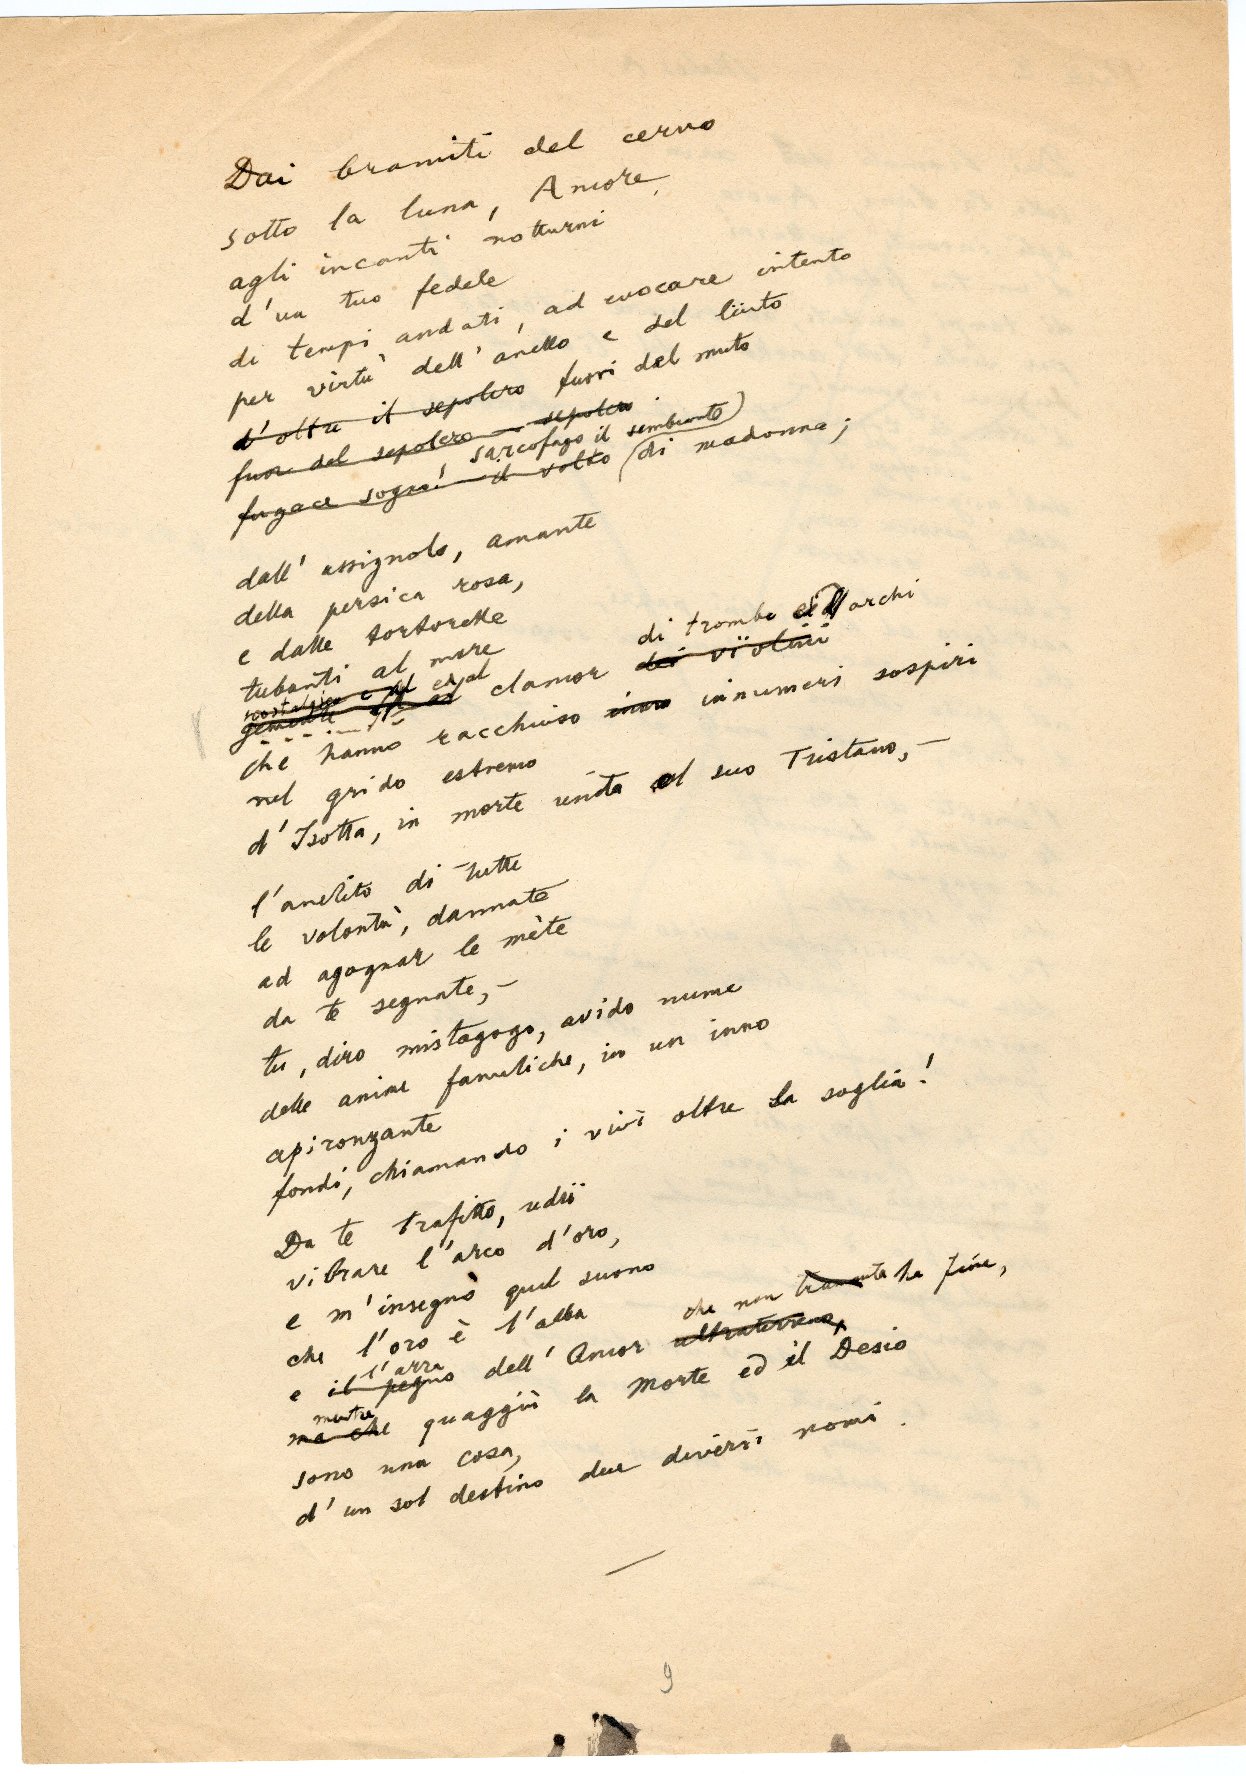 Dai bramiti del cervo
sotto la luna, Amore,
agli incanti notturni
d'un tuo fedele
di tempi andati, ad evocare intento
per virtù dell'anello e del liuto
d'oltre il sepolcro fuori del muto
fuor del sepolcro sepolcro
sarcofago il sembiante
fugace sogno! il volto di madonna;
dall'assignolo, amante
della persica rosa,
e dalle tortorelle
tubanti al mare
di trombe archi
nostalgico e al
gemente clamor dei violini
che hanno racchiuso innu innumeri sospiri
nel grido estremo
d'Isotta, in morte unita al suo Tristano, –
l'anelito di tutte
le volontà, dannate
ad agognar le mète
da te segnate, –
tu, diro mistagogo, avido nume
delle anime fameliche, in un inno
apironzante
fondi, chiamando i vivi oltre la soglia!
Da te trafitto, udii
vibrare l'arco d'oro,
e m'insegnò quel suono
che l'oro è l'alba
che non ha fine,
l'arra
e il pegno dell'Amor ultraterreno,
mentre
ma che quaggiù la Morte ed il Desio
sono una cosa,
d'un sol destino due diversi nomi.
9